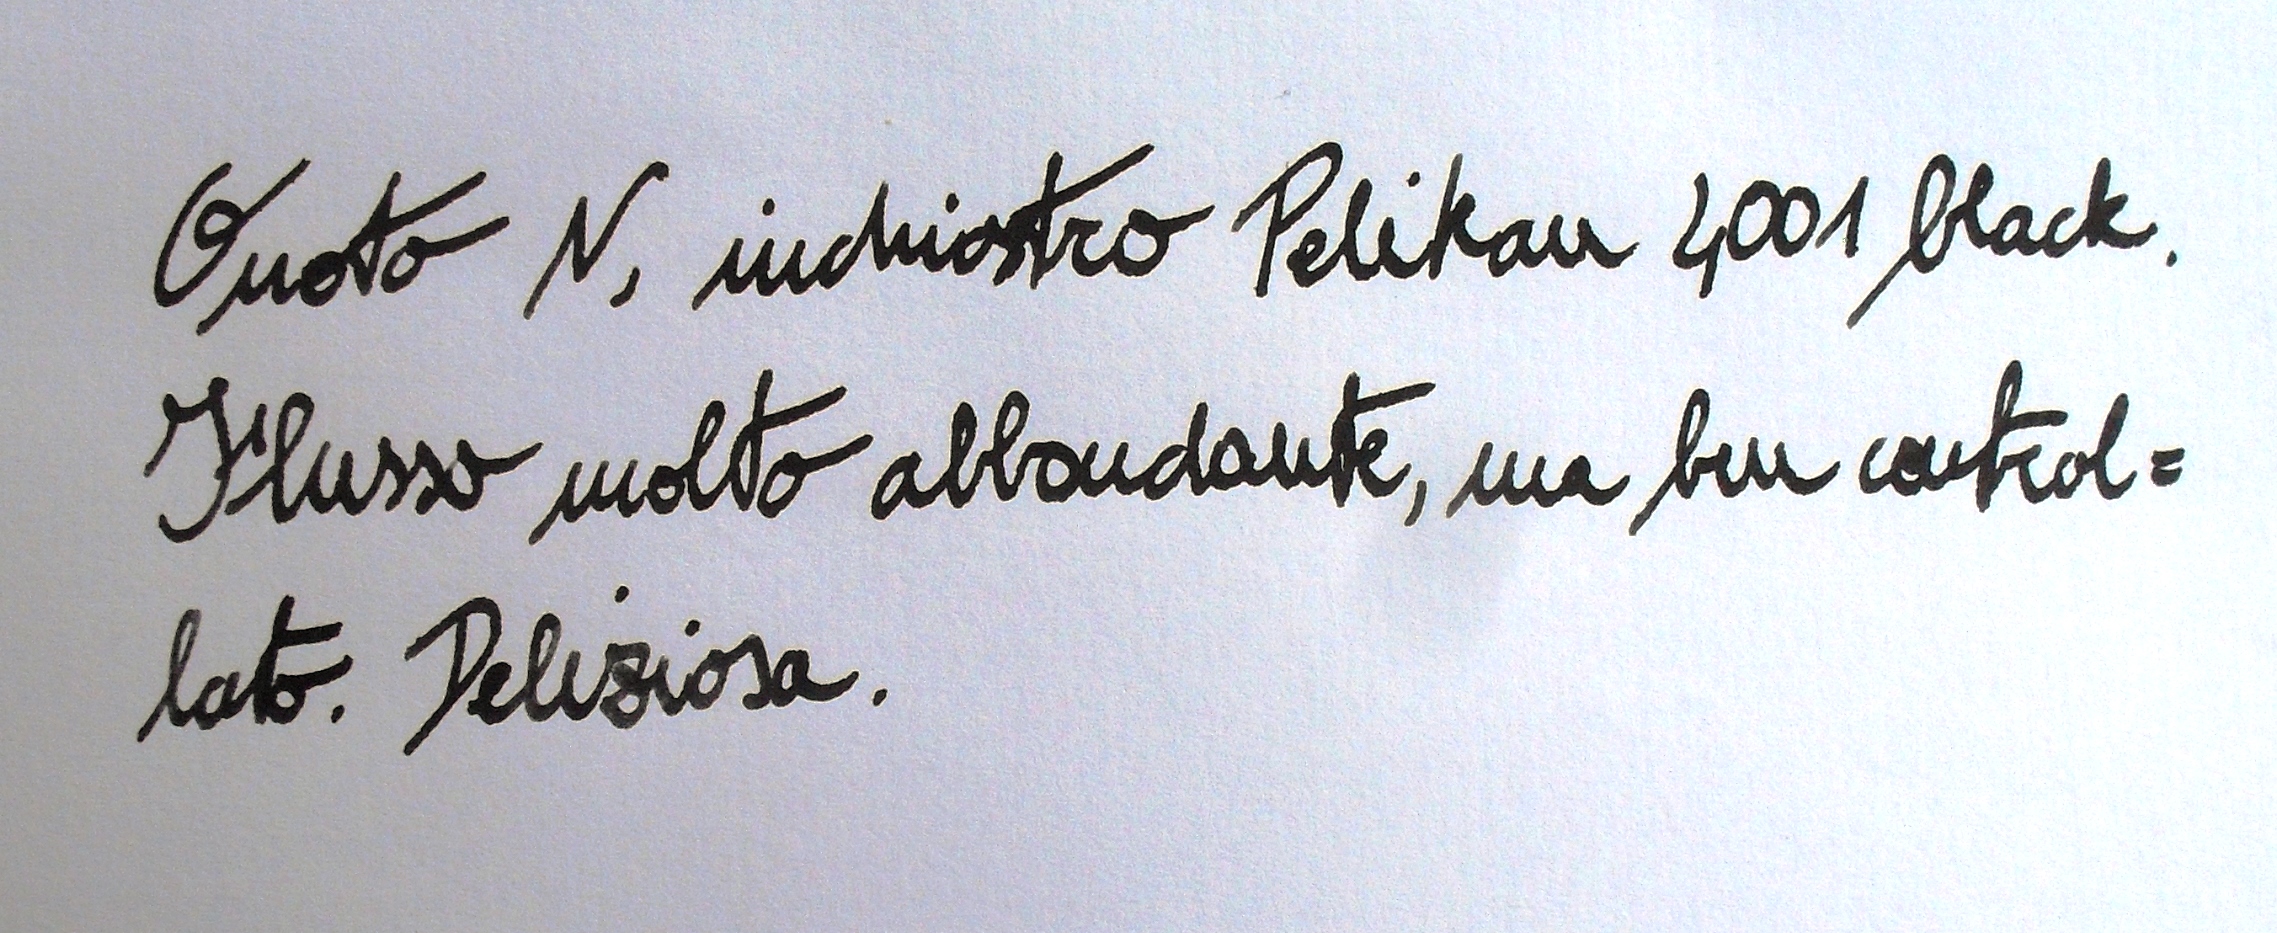 Onoto N, inchiostro Pelikan 4001 black.
Flusso molto abbondante, ma ben control=
lato. Deliziosa.